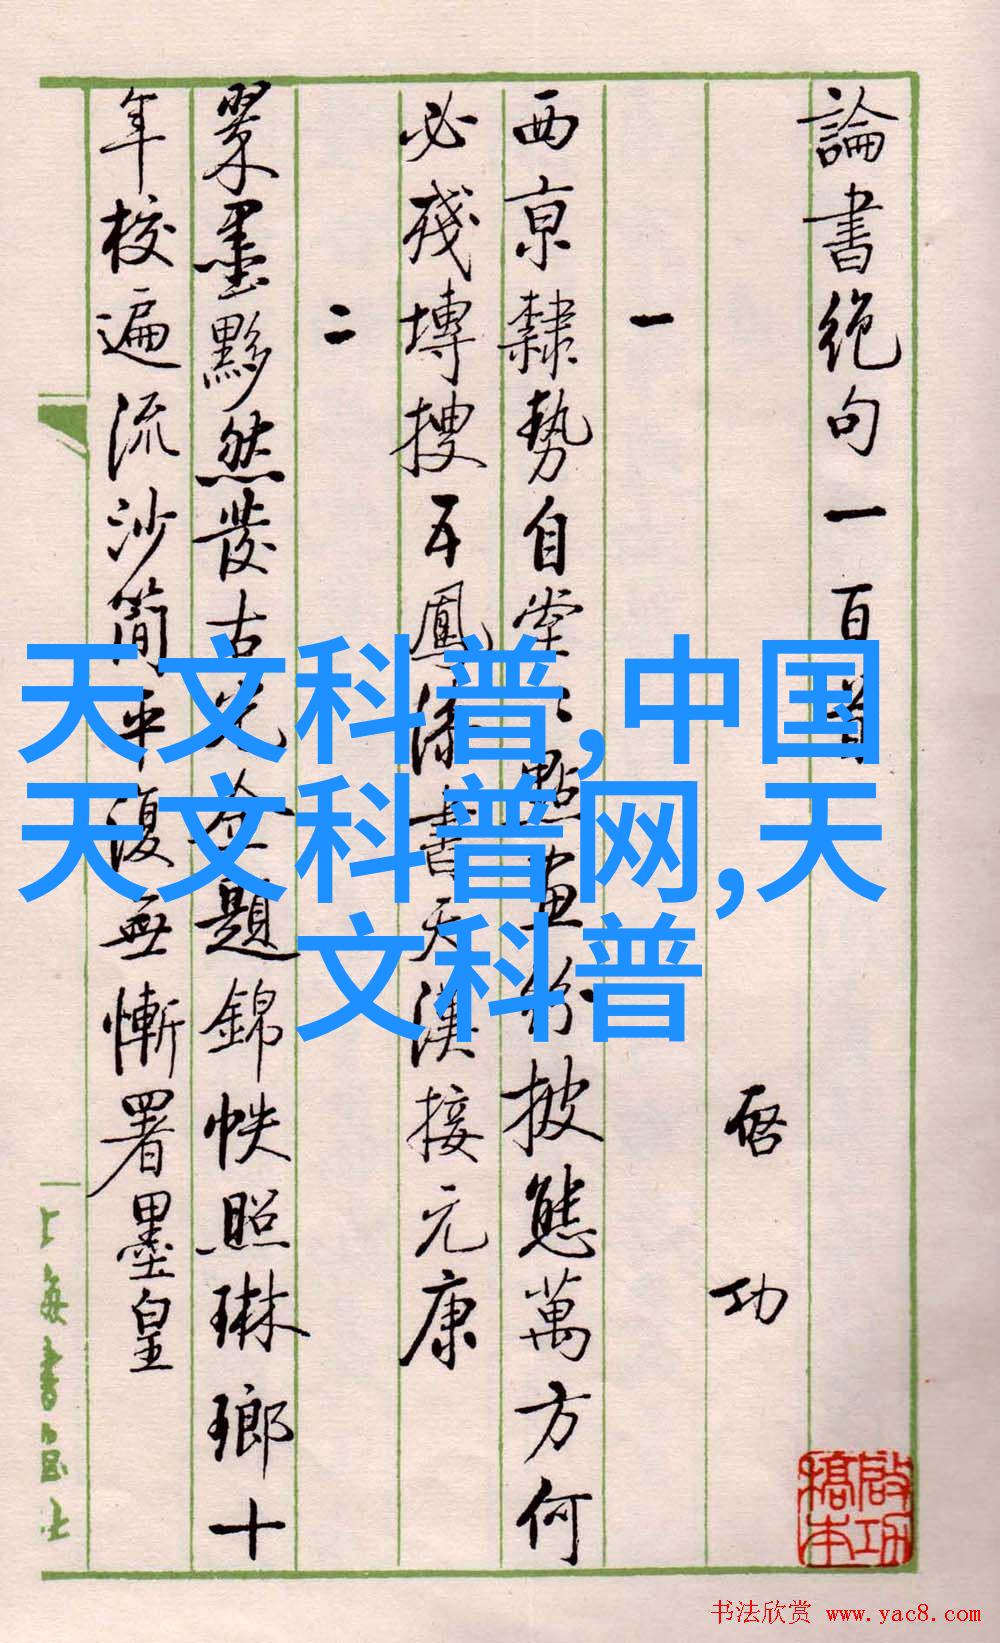 論書絶句一百首
啓功
一
西京隸勢自堂堂點畫紛披態萬方何
必殘塼搜五鳳漆書天漢接元康
二
翠墨黟然發古光金題錦帙照琳瑯十
年校遍流沙簡平復無慚署墨皇
上海書画社
啟功
稿本
天文科普,中国
天文科普网,天
文科普
书法欣赏 www.yac8.com